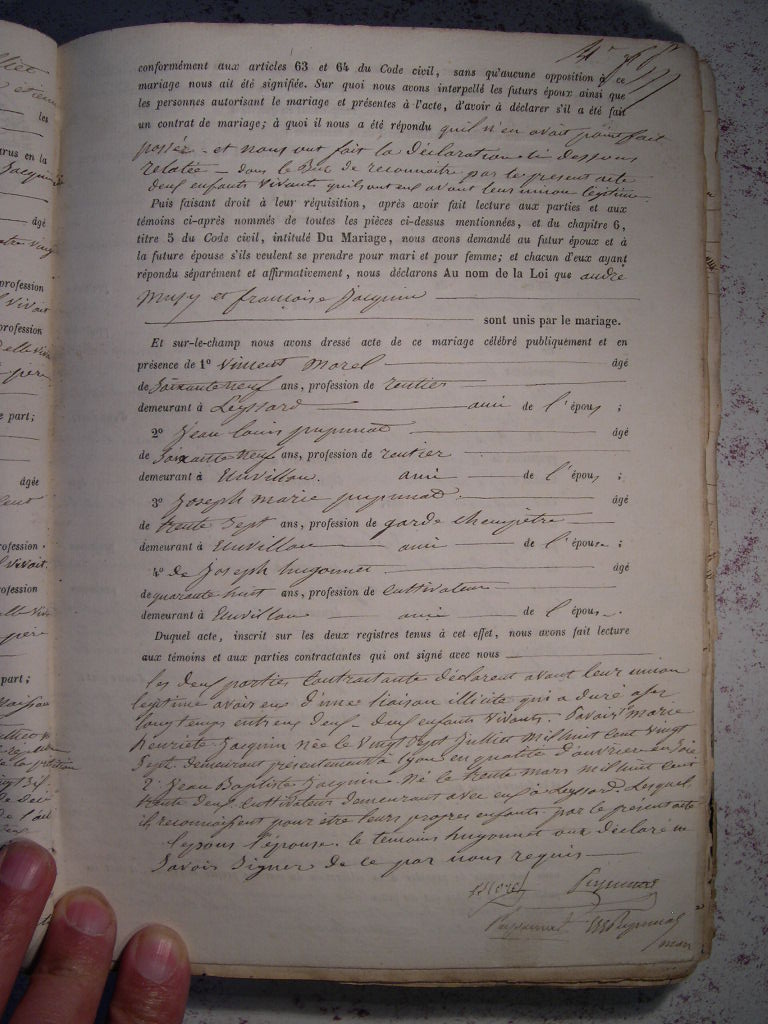 conformément aux articles 63 et 64 du Code civil, sans qu'aucune opposition à ce
mariage nous ait été signifiée. Sur quoi nous avons interpellé les futurs époux ainsi que
les personnes autorisant le mariage et présentes à l'acte, d'avoir à déclarer s'il a été fait
un contrat de mariage; à quoi il nous a été répondu qu'il n'en avoit point fait
passér - et nous ont fait la déclaration ci dessous
relatée - dans le But de reconnaitre par le present acte
deuf enfants vivants qu'ils ont eu avant leur union légitime
Puis faisant droit à leur réquisition, après avoir fait lecture aux parties et aux
témoins ci-après nommés de toutes les pièces ci-dessus mentionnées, et du chapitre 6,
titre 5 du Code civil, intitulé Du Mariage, nous avons demandé au futur époux et à
la future épouse s'ils veulent se prendre pour mari et pour femme; et chacun d'eux ayant
répondu séparément et affirmativement, nous déclarons Au nom de la Loi que andré
musy et françoise Jacquin
sont unis par le mariage.
Et sur-le-champ nous avons dressé acte de ce mariage célébré publiquement et en
présence de 1º Vincent Morel âgé
de Soixante neuf ans, profession de rentier
demeurant à Leyssard ami de l'épouy ;
2º Jean louis pupunat âgé
de Soixante neuf ans, profession de rentier
demeurant à Euvillou. ami de l'épouy ;
3º Joseph marie pupunat âgé
de trente Sept ans, profession de garde champètre
demeurant à Euvillou ami de l'épouse ;
4º de Joseph hugonnet âgé
de quarante huit ans, profession de Cultivateur
demeurant à Euvillou ami de l'épouse.
Duquel acte, inscrit sur les deux registres tenus à cet effet, nous avons fait lecture
aux témoins et aux parties contractantes qui ont signé avec nous
les deuf parties Contractante déclarent avant leur union
légitime avoir eu d'une liaison illicite qui a duré assez
longtemps entre eux deuf - deuf enfants vivants. Savoir marie
henriete Jacquin née le vingt Sept Juillet mil huit cent vingt
Sept demeurant présentement à Lyon en qualité d'ouvriere en Soie
2º Jean Baptiste Jacquin - né le trente mars mil huit cent
trente deuf Cultivateur demeurant avec euf à Leyssard. Lesquels
ils reconnaissent pour être leurs propres enfants par le présent acte
l'époux l'épouse. le temoins hugonnet ont déclaré ne
Savoir Signer de ce par nous requis
Morel Pupunat
Pupunat Pupunat